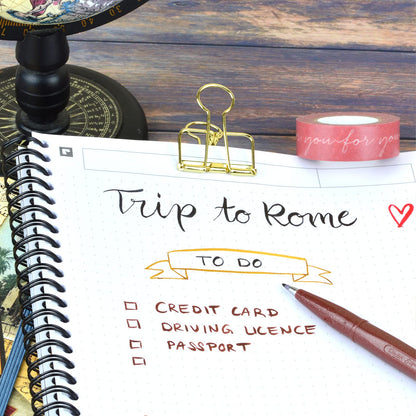 you for you
Trip to Rome
TO DO
CREDIT CARD
DRIVING LICENCE
PASSPORT